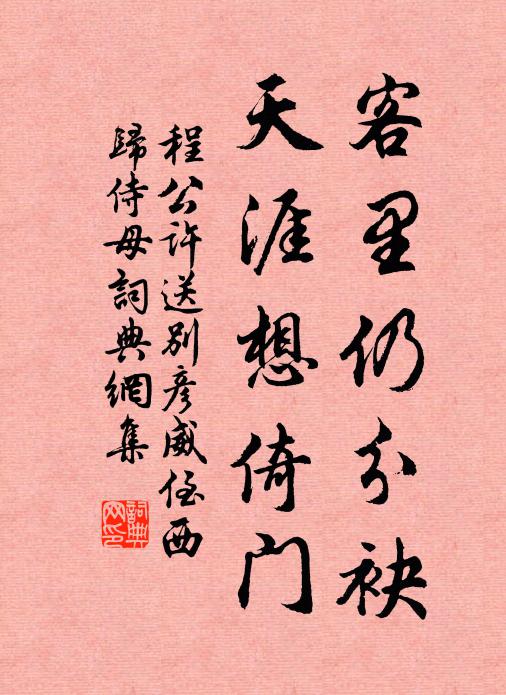 客里仍分袂
天涯想倚门
程公许送别彦威侄西
歸侍母詞典網集
詞典网印